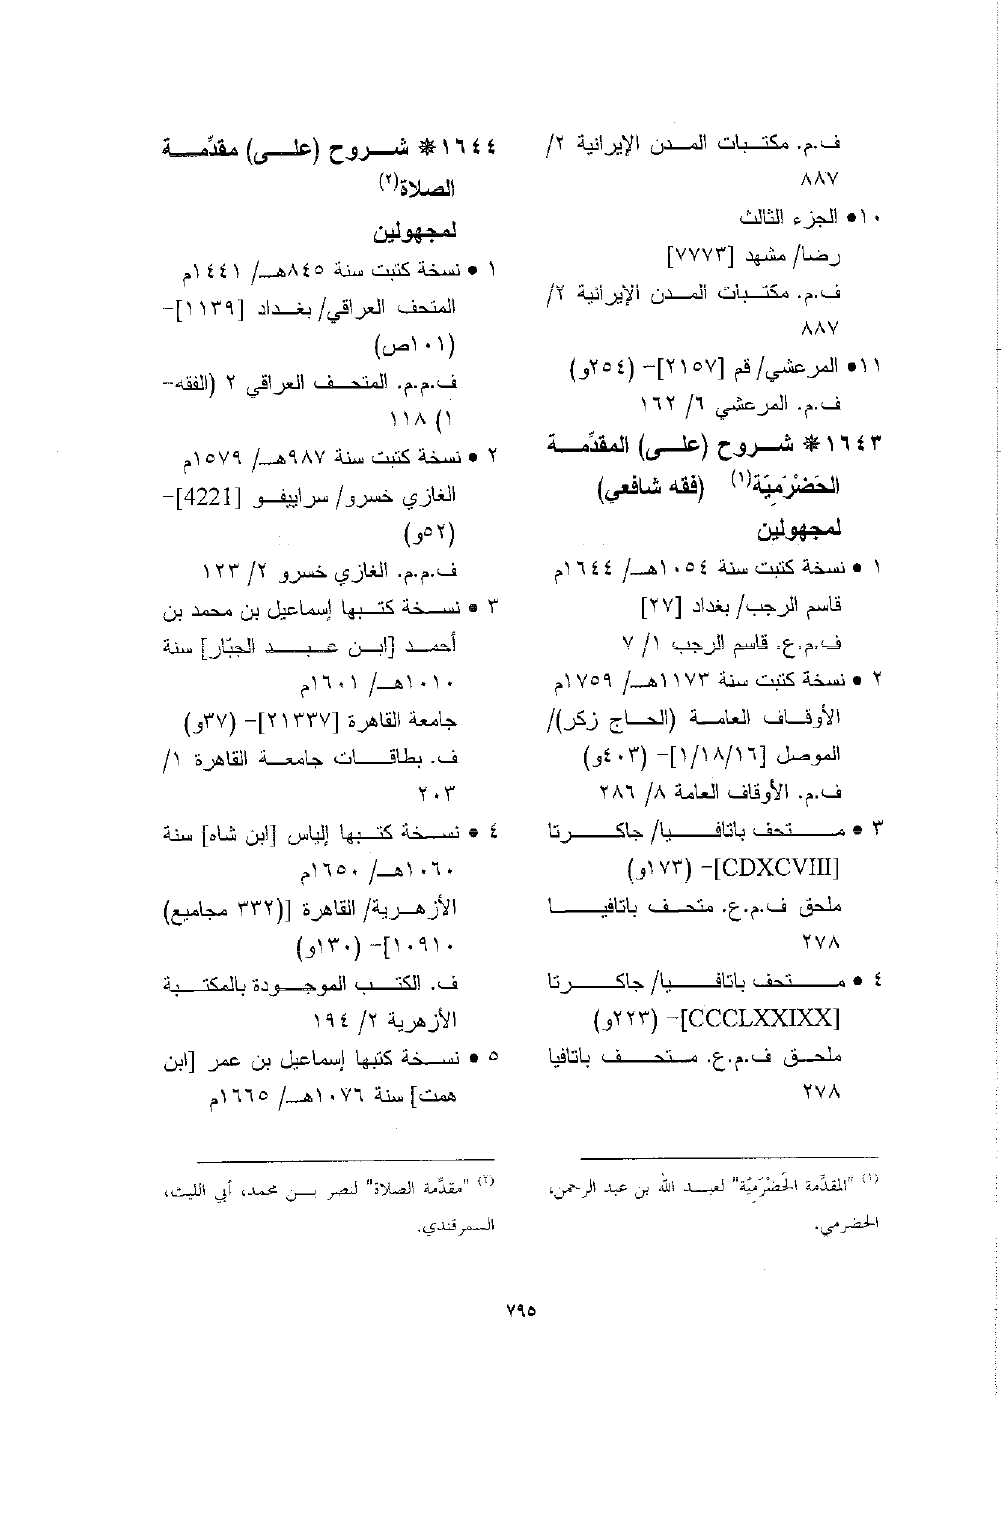 ف.م. مكتبات المدن الإيرانية ٢/
٨٨٧
١٠• الجزء الثالث
رضا/ مشهد [٧٧٧٣]
ف.م. مكتبات المدن الإيرانية ٢/
٨٨٧
١١• المرعشي/ قم [٢١٥٧]- (٢٥٤و)
ف.م. المرعشي ٦/ ١٦٢
١٦٤٣* شروح (على) المقدّمة
الحَضْرَمِيّة(١) (فقه شافعي)
لمجهولين
١ • نسخة كتبت سنة ١٠٥٤هـ/ ١٦٤٤م
قاسم الرجب/ بغداد [٢٧]
ف.م.ع. قاسم الرجب ١/ ٧
٢ • نسخة كتبت سنة ١١٧٣هـ/ ١٧٥٩م
الأوقاف العامة (الحاج زكر)/
الموصل [١/١٨/١٦]- (٤٠٣و)
ف.م. الأوقاف العامة ٨/ ٢٨٦
٣ • متحف باتافيا/ جاكرتا
[CDXCVIII]- (١٧٣و)
ملحق ف.م.ع. متحف باتافيا
٢٧٨
٤ • متحف باتافيا/ جاكرتا
[CCCLXXIXX]- (٢٢٣و)
ملحق ف.م.ع. متحف باتافيا
٢٧٨
(١) "المقدِّمة الحَضْرَمِيّة" لعبد الله بن عبد الرحمن،
الحضرمي.
١٦٤٤* شروح (على) مقدّمة
الصلاة(٢)
لمجهولين
١ • نسخة كتبت سنة ٨٤٥هـ/ ١٤٤١م
المتحف العراقي/ بغداد [١١٣٩]-
(١٠١ص)
ف.م.م. المتحف العراقي ٢ (الفقه-
١) ١١٨
٢ • نسخة كتبت سنة ٩٨٧هـ/ ١٥٧٩م
الغازي خسرو/ سراييفو [4221]-
(٥٢و)
ف.م.م. الغازي خسرو ٢/ ١٢٣
٣ • نسخة كتبها إسماعيل بن محمد بن
أحمد [ابن عبد الجبّار] سنة
١٠١٠هـ/ ١٦٠١م
جامعة القاهرة [٢١٣٣٧]- (٣٧و)
ف. بطاقات جامعة القاهرة ١/
٢٠٣
٤ • نسخة كتبها إلياس [ابن شاه] سنة
١٠٦٠هـ/ ١٦٥٠م
الأزهرية/ القاهرة [(٣٣٢ مجاميع)
١٠٩١٠]- (١٣٠و)
ف. الكتب الموجودة بالمكتبة
الأزهرية ٢/ ١٩٤
٥ • نسخة كتبها إسماعيل بن عمر [ابن
همت] سنة ١٠٧٦هـ/ ١٦٦٥م
(٢) "مقدِّمة الصلاة" لنصر بن محمد، أبي الليث،
السمرقندي.
٧٩٥